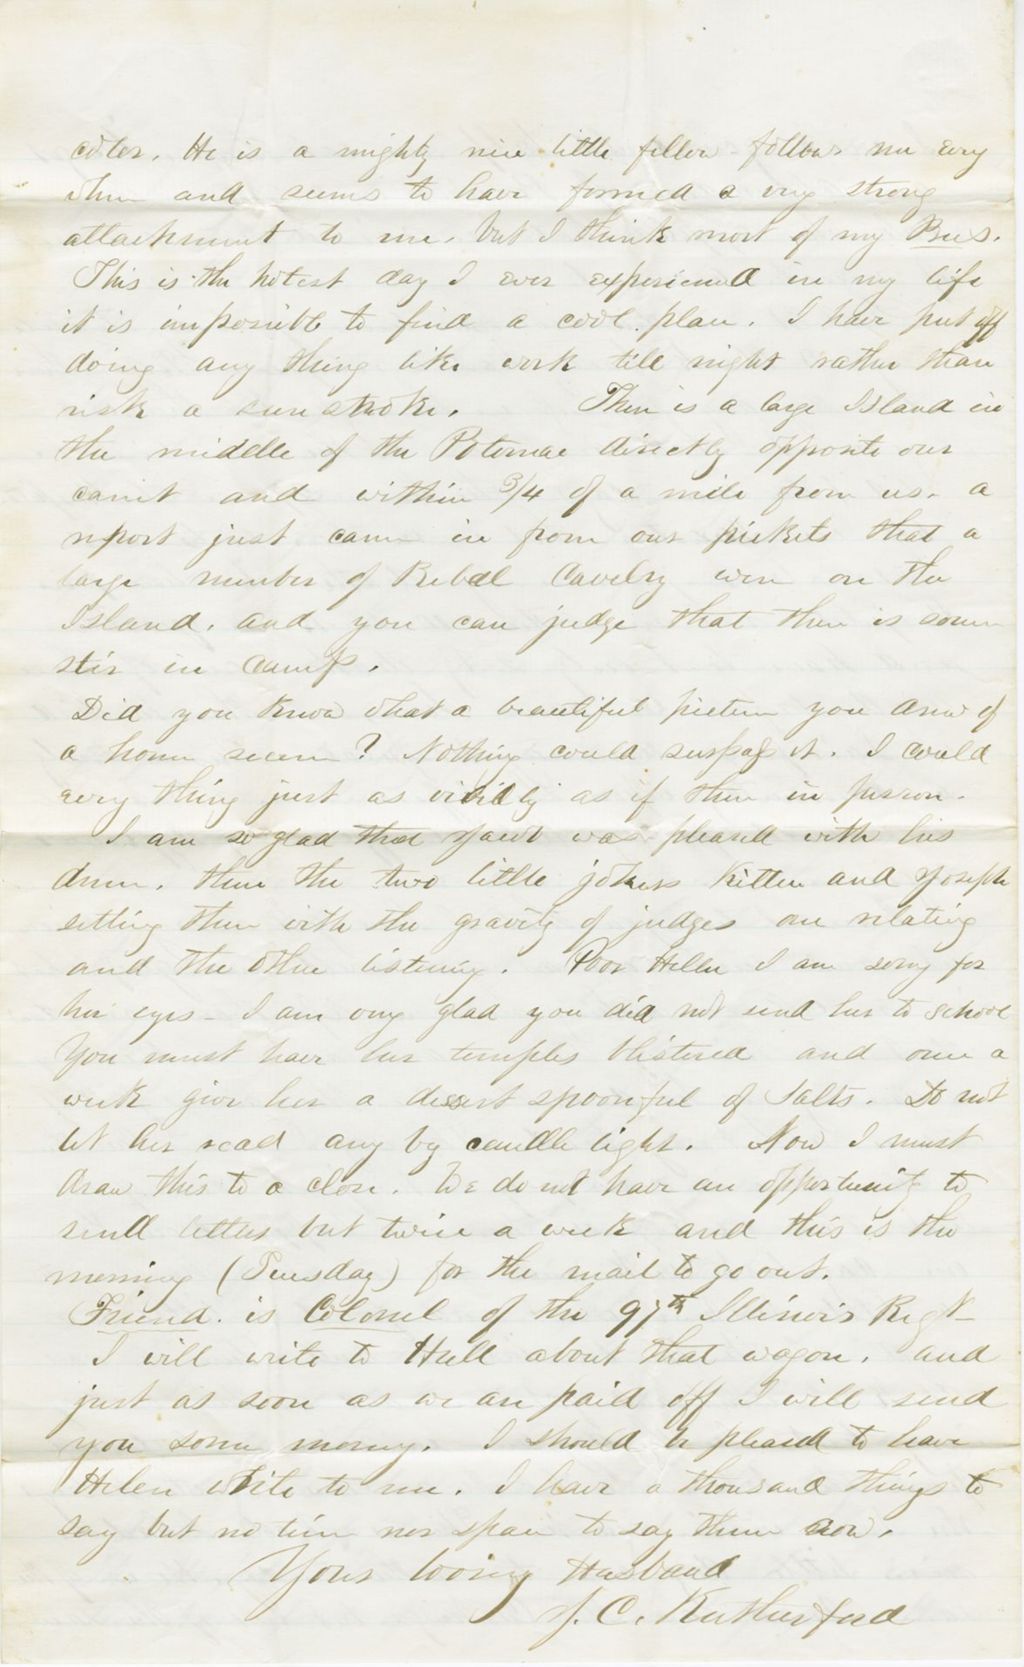 color. He is a mighty nice little fellow follows me evry
where and seems to have formed a very strong
attachment to me. but I think most of my Bees.
This is the hotest day I ever experienced in my life
it is imposible to find a cool place. I have put off
doing any thing like work till night rather than
risk a sunstroke. There is a large Island in
the middle of the Potomac directly opposite our
camp and within 3/4 of a mile from us. a
report just came in from our pickets that a
large number of Rebel Cavelry were on the
Island. and you can judge that there is some
stir in camp.
Did you know what a beautiful picture you drew of
a home scene? Nothing could surpass it. I could
every thing just as vividly as if there in person.
I am so glad that was pleased with his
drum. then the two little jokers Kittee and Joseph
setting there with the gravity of judges one relating
and the other listening. Poor Helen I am sorry for
her eyes - I am very glad you did not send her to school
You must have her temples blistered and once a
week give her a desert spoonful of Salts. Do not
let her read any by candle light. Now I must
draw this to a close. We do not have an opportunity to
send letters but twice a week and this is the
morning (Tuesday) for the mail to go out.
Friend. is Colonel of the 97th Illinois Regt-
I will write to Hull about that wagon. and
just as soon as we are paid off I will send
you some money. I should be pleased to have
Helen write to me. I have a thousand things to
say but no time nor space to say them now.
Your loving Husband
J. C. Rutherford